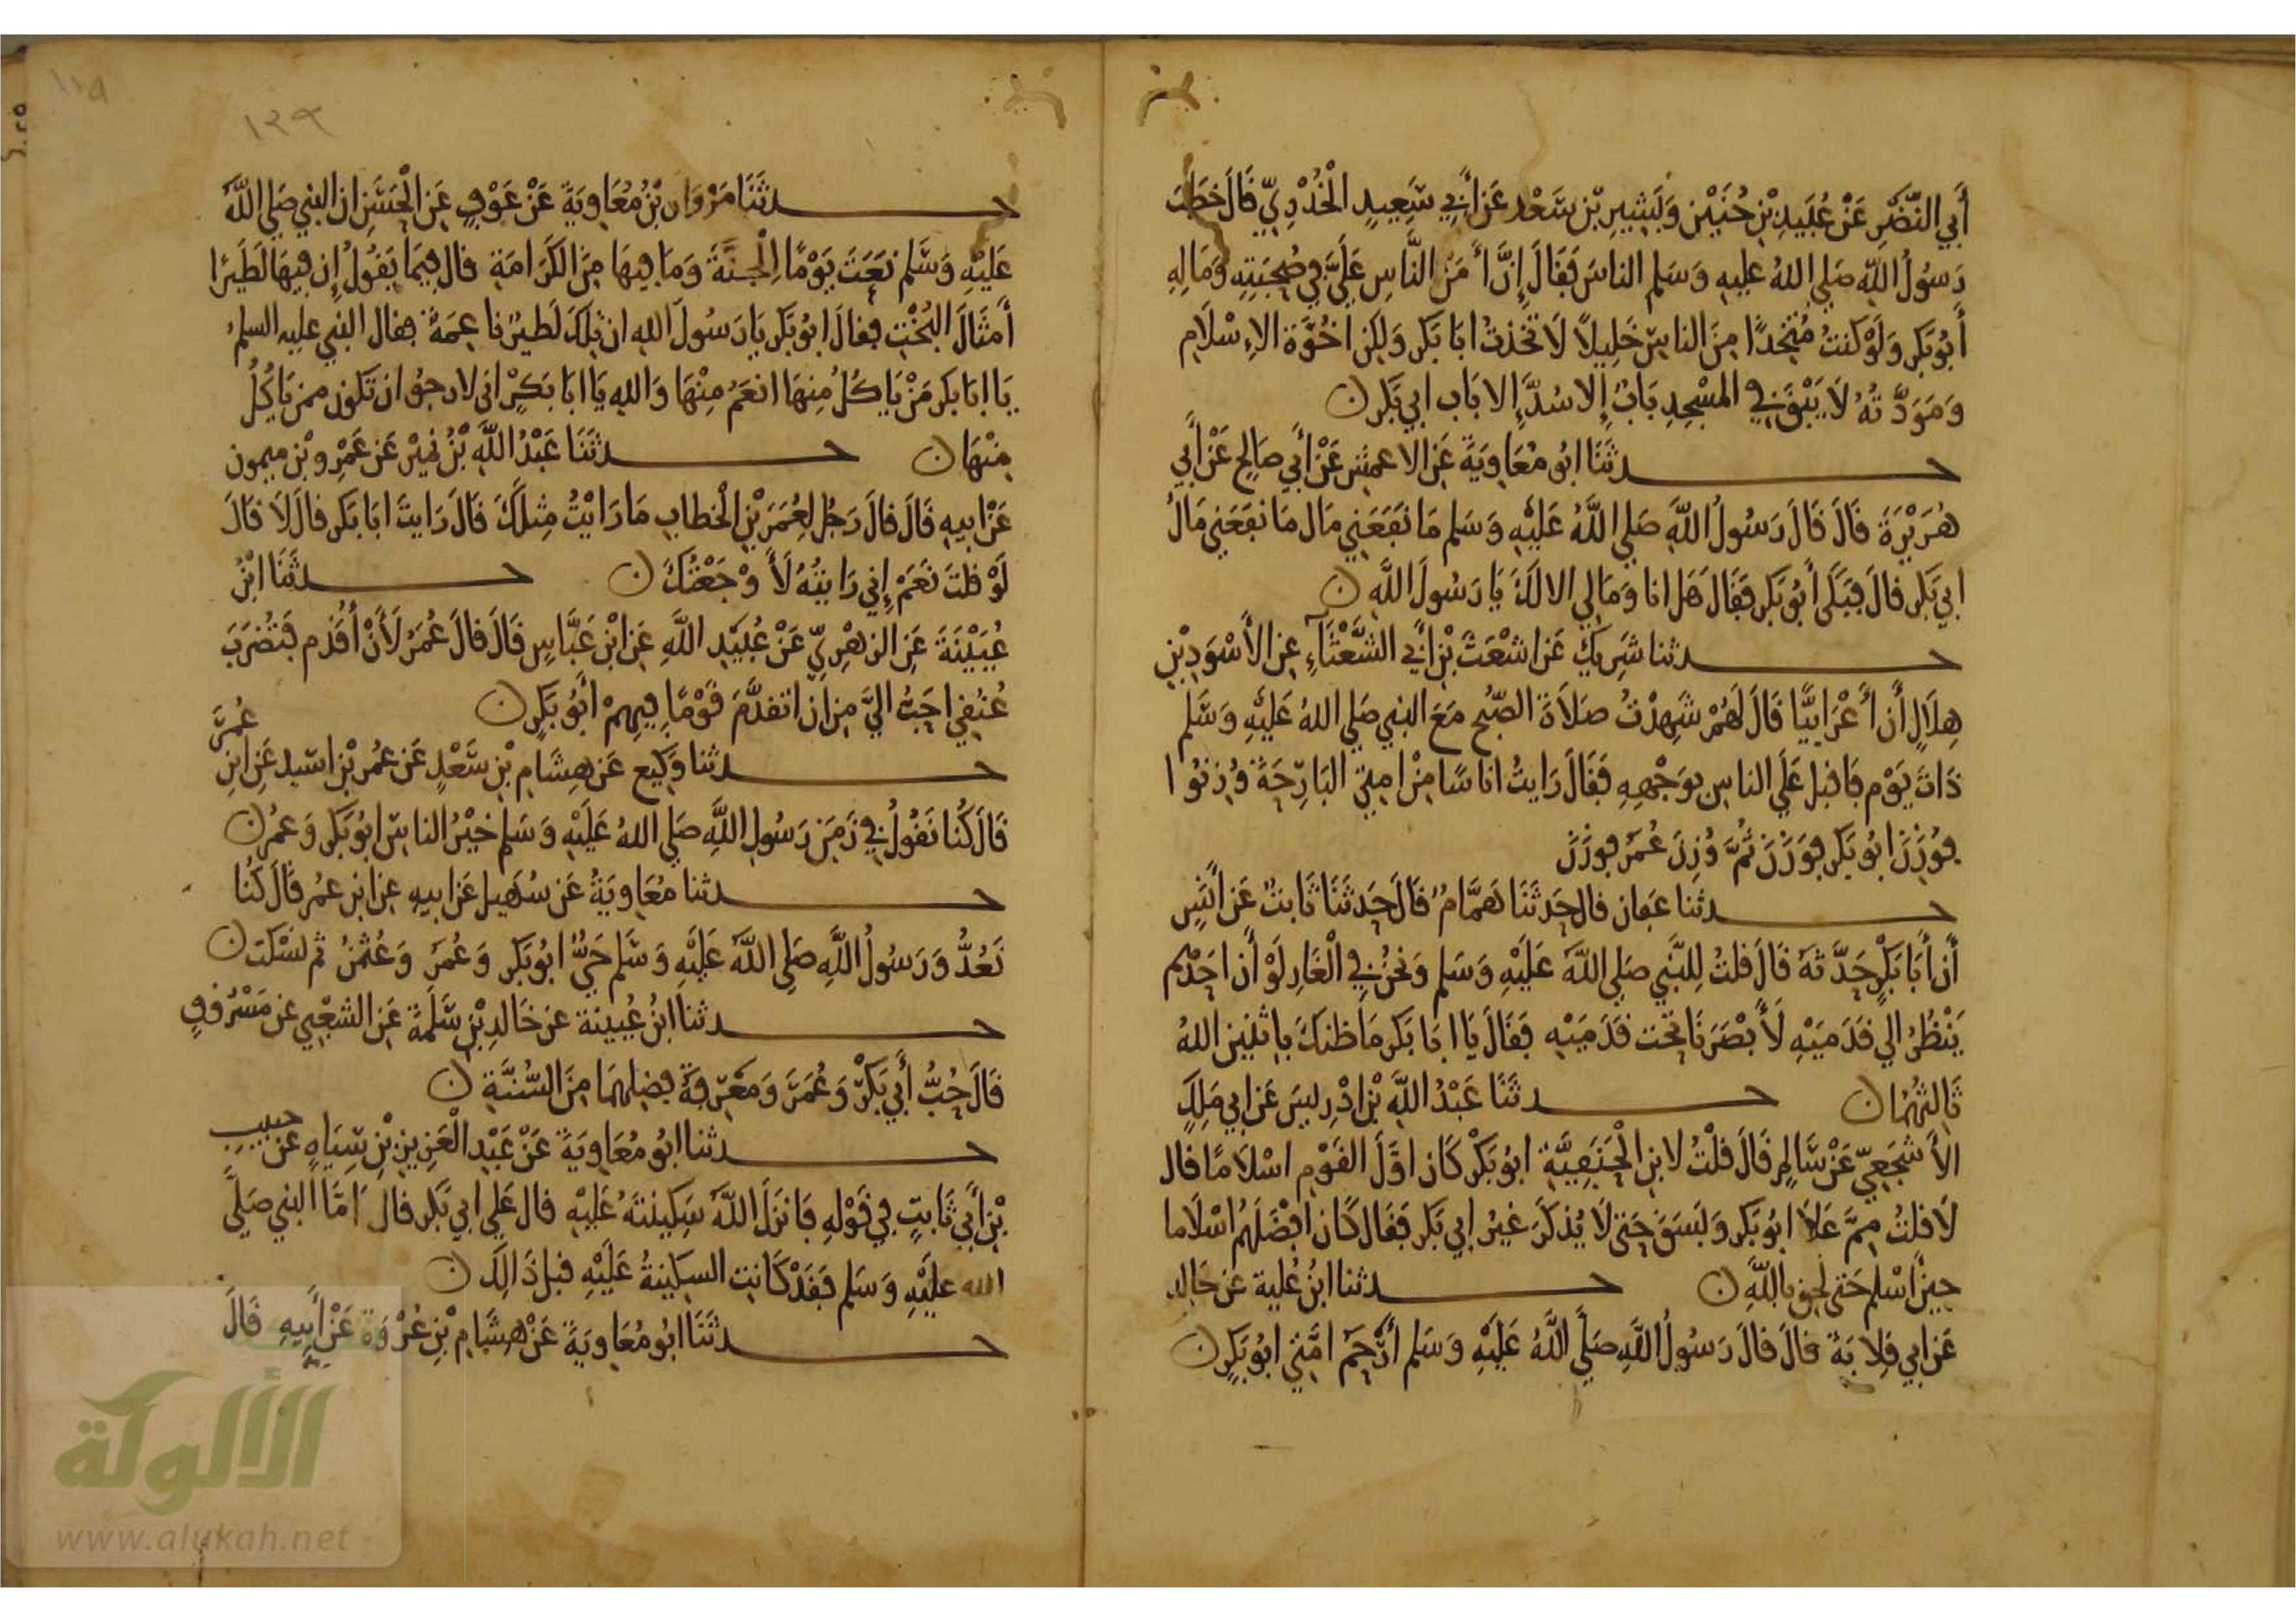 أَبِي النَّضْرِ عَنْ عُبَيْدِ بْنِ حُنَيْنٍ وَبُسْرِ بْنِ سَعْدٍ عَنْ أَبِي سَعِيدٍ الْخُدْرِيِّ قَالَ خَطَبَ
رَسُولُ اللَّهِ صَلى اللهُ عليهِ وَسَلم الناسَ فَقَالَ إِنَّ أَمَنَّ النَّاسِ عَلَيَّ فِي صُحْبَتِهِ وَمَالِهِ
أَبُو بَكرٍ وَلَوْ كنتُ مُتخِذًا مِنَ الناسِ خَلِيلاً لَاتخذتُ ابَا بَكرٍ وَلكِن اخُوَّة الاِسْلَامِ
وَمَوَدَّتُهُ لَا يَبْقَى فِي المسْجِدِ بَابٌ إِلا سُدَّ إِلا بَاب ابي بَكر ن
حدثَنَا ابُو مُعَاوِيَةَ عَنِ الاعمشِ عَنْ أَبِي صَالحٍ عَنْ أَبِي
هُرَيْرَةَ قَالَ قَالَ رَسُولُ اللَّهِ صَلى اللَّهُ عَلَيْهِ وَسَلم مَا نَفَعَنِي مَال مَا نفَعَنِي مَالُ
ابي بَكرٍ قالَ فَبَكَى أَبُو بَكرٍ فَقَالَ هَل انا وَمَالِي الا لَكَ يَا رَسُولَ اللَّهِ ن
حدثنا شَرِيكٌ عَن اشْعَثَ بْنِ أَبِي الشَّعْثَاءِ عنِ الأَسْوَدِ بْنِ
هِلَالٍ أَن أَعْرَابِيًّا قَالَ لَهُمْ شَهِدْتُ صَلَاةَ الصُّبح مَعَ النبي صَلى اللهُ عَلَيْهِ وَسَلَّم
ذَاتَ يَوْم فَاقبل عَلَى الناسِ بوَجْهِهِ فَقَالَ رَايتُ اناسًا مِنْ امتي البَارِحَةَ وُزِنُوا
فوُزِنَ ابُو بَكر فوَزَنَ ثُمَّ وُزِنَ عُمَرُ فوزَنَ
حدثنا عَفان قال حَدثَنَا هَمَّامٌ قَالَ حَدثَنَا ثَابتٌ عَن أَنَسٍ
أَن أَبَا بَكْرٍ حَدَّثَهُ قَالَ قلتُ لِلنَّبي صَلى اللَّهُ عَلَيْهِ وَسَلم وَنحْنُ فِي الْغَارِ لَوْ أَن احَدَهُم
يَنْظُرُ الى قَدَمَيْهِ لَأَبْصَرَنَا تحْت قَدَمَيْهِ فَقَالَ يَا ابَا بَكر مَا ظنكَ باثنين اللهُ
ثَالثهُمَا ن حدثَنَا عَبْدُ اللَّهِ بْنُ ادْرِيسَ عَن ابي مَلِكٍ
الأَشْجَعِيّ عَنْ سَالِمٍ قَالَ قلْتُ لابنِ الْحَنَفِيَّةِ ابُو بَكْرٍ كَان اوَّلَ القَوْمِ اسْلَامًا قال
لَا قلتُ مِمَّ عَلَا ابُو بَكر وَبَسَقَ حَتى لَا يُذكَرَ غيرُ ابي بَكر فَقَال كَان افْضَلَهُم اسْلَاما
حِينَ اسْلم حَتى لحِق باللَّهِ ن حدثنا ابنُ عُلَية عن خَالِد
عَن ابي قِلابَة قالَ قالَ رَسُولُ اللهِ صَلى اللَّهُ عَلَيْهِ وَسَلم أَرْحَمُ امَّتِي ابُو بَكرٍ ن
١٣٩
١١٩
حدثَنَا مَرْوَانُ بْنُ مُعَاوِيَةَ عَنْ عَوْفٍ عَنِ الْحَسَنِ ان النبي صَلى اللَّهُ
عَلَيْهِ وَسَلم نَعَتَ يَوْمًا الْجنَّةَ وَمَا فِيهَا مِنَ الكَرَامَةِ قال فِيمَا يَقولُ إِن فِيهَا لَطَيْرًا
أَمْثَالَ البُخْتِ فقالَ ابُو بَكر يَا رَسُولَ اللهِ ان تِلكَ لَطَيْرٌ نَاعِمَةٌ فقال النبي عليه السلم
يَا ابَا بَكر مَنْ يَاكلُ مِنهَا انعَمُ مِنْهَا وَاللهِ يَا ابَا بَكِرٍ انى لارجُو ان تَكون ممن يَاكُلُ
مِنْهَا ن حدثَنَا عَبْدُ اللَّهِ بْنُ نميْرٍ عَن عَمْرِو بْنِ ميمون
عَنْ ابيهِ قَالَ قالَ رَجُل لِعُمَرَ بْنِ الْخطابِ مَا رَايْتُ مِثلَكَ قَالَ رَايتَ ابَا بَكر قالَ لَا قَالَ
لَوْ قلتَ نَعَمْ إِني رَايتُهُ لَأَوْجَعْتُكَ ن حدثَنَا ابْنُ
عُيَيْنَةَ عَنِ الزهْرِيِّ عَنْ عُبَيْدِ اللَّهِ عَنِ ابْنِ عَبَّاسٍ قَالَ قَالَ عُمَرُ لَأَنْ أُقَدَّم فَتُضْرَبَ
عُنُقِي احَبُّ اليَّ مِن ان اتقدَّمَ قَوْمًا فِيهِمْ ابُو بَكرٍ ن
حدثنا وَكِيع عَن هِشَامِ بْنِ سَعْدٍ عَن عُمَرَ بْنِ اسَيد عَنِ ابنِ عُمَرَ
قَالَ كُنا نَقُولُ فِي زَمَنِ رَسُولِ اللَّهِ صَلى اللهُ عَلَيْهِ وَسَلم خيْرُ الناسِ ابُو بَكر وَعمرُ ن
حدثنا مُعَاوِيَةُ عَن سُهَيل عَن ابيهِ عنِ ابنِ عمُر قَالَ كُنا
نَعُدُّ وَرَسُولُ اللَّهِ صَلى اللَّهُ عَلَيْهِ وَسَلم حَيٌّ ابُو بَكر وَعُمَرَ وَعُثمنُ ثم نسْكت ن
حدثنا ابنُ عُيينة عن خَالدِ بْنِ سَلَمَةَ عَنِ الشعْبِي عن مَسْرُوقٍ
قَالَ حُبُّ أَبِي بَكْرٍ وَعُمَرَ وَمَعْرِفةُ فضلِهمَا مِنَ السُّنَّةِ ن
حدثنا ابُو مُعَاوِيَةَ عَنْ عَبْدِ الْعَزِيزِ بْنِ سِيَاهٍ عَن حبيبِ
بْنِ أَبِي ثَابتٍ فِي قَوْلِهِ فَانزَلَ اللَّهُ سَكِينَتَهُ عَلَيْهِ قال عَلى ابي بَكر قالَ امَّا النبي صَلى
الله عليْهِ وَسَلم فَقَدْ كَانت السكينةُ عَلَيْهِ قبل ذَالِكَ ن
حدثَنَا ابُو مُعَاوِيَةَ عَنْ هِشَامِ بْنِ عُرْوَةَ عَنْ أَبِيهِ قَالَ
الألوكة
www.alukah.net